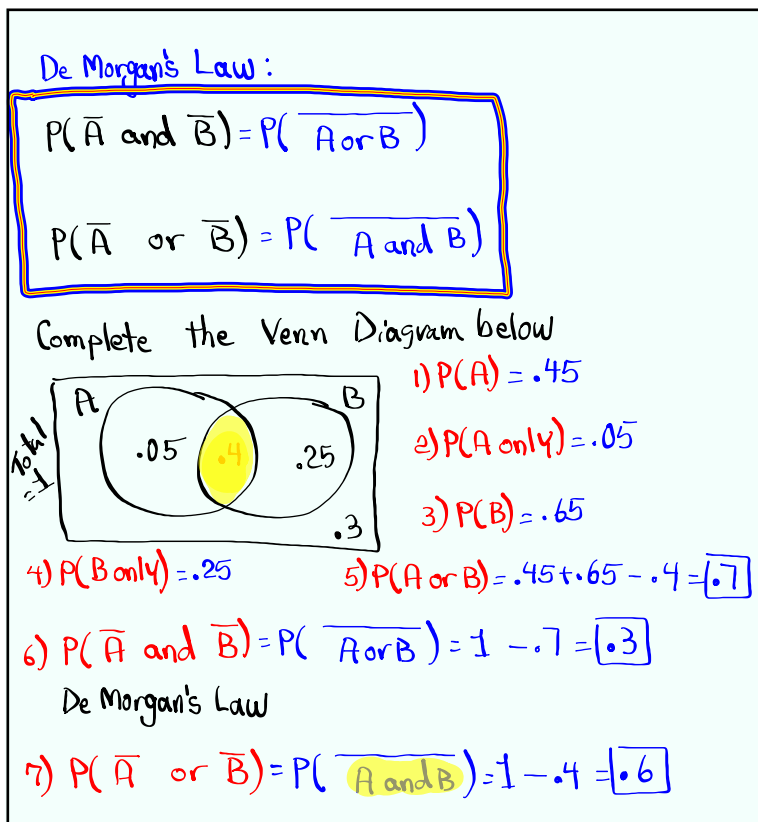 De Morgan's Law:
P(A̅ and B̅) = P( A̅ ̅o̅r̅ ̅B̅ )
P(A̅ or B̅) = P( A̅ ̅a̅n̅d̅ ̅B̅ )
Complete the Venn Diagram below
1) P(A) = .45
A B
Total = 1
.05 .4 .25
2) P(A only) = .05
3) P(B) = .65
.3
4) P(B only) = .25
5) P(A or B) = .45 + .65 - .4 = .7
6) P(A̅ and B̅) = P( A̅ ̅o̅r̅ ̅B̅ ) = 1 - .7 = .3
De Morgan's Law
7) P(A̅ or B̅) = P( A̅ ̅a̅n̅d̅ ̅B̅ ) = 1 - .4 = .6